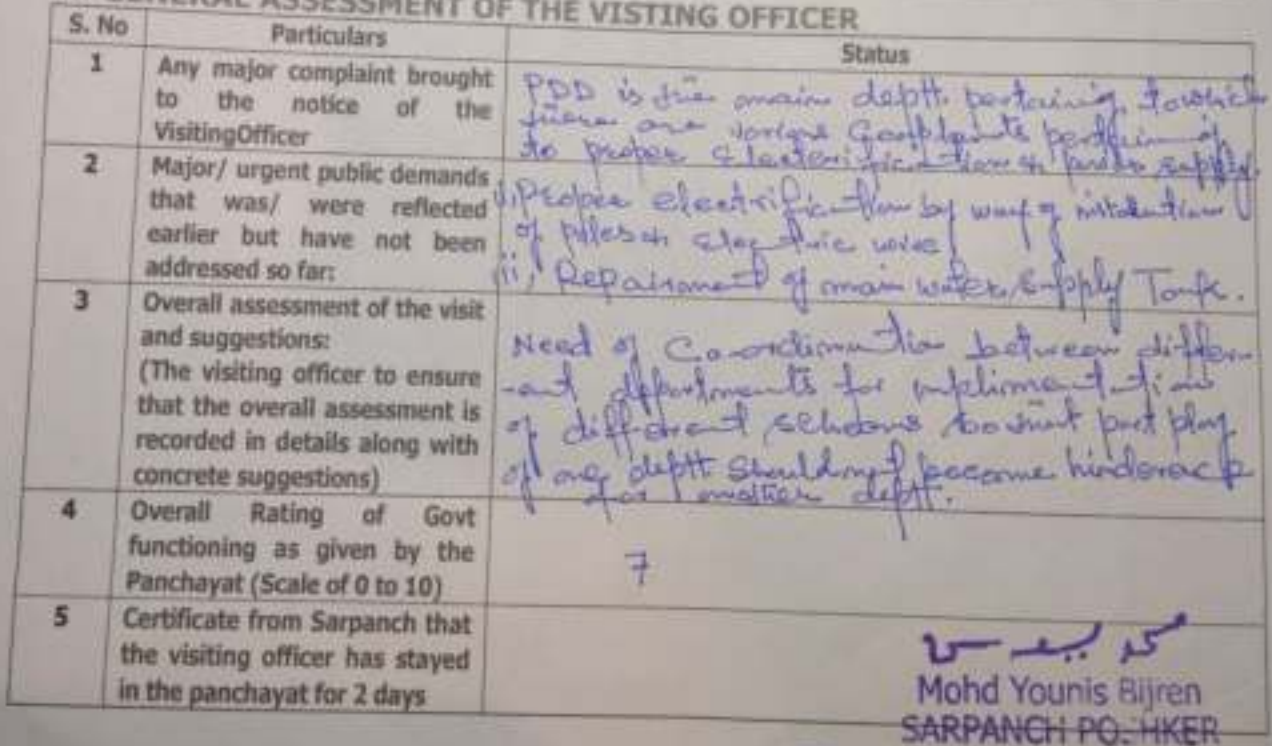 GENERAL ASSESSMENT OF THE VISTING OFFICER
S. No Particulars Status
1 Any major complaint brought
to the notice of the
VisitingOfficer
PDD is the main deptt. pertaining to which
there are various Complaints pertaining
to proper electrification & power supply.
2 Major/ urgent public demands
that was/ were reflected
earlier but have not been
addressed so far:
i, Proper electrification by way of
of poles & electric wire
ii, Repairment of main water supply Tank.
3 Overall assessment of the visit
and suggestions:
(The visiting officer to ensure
that the overall assessment is
recorded in details along with
concrete suggestions)
Need of Co-ordination between differ-
-ent departments for
of different so that part play
of one deptt should not become
for another deptt.
4 Overall Rating of Govt
functioning as given by the
Panchayat (Scale of 0 to 10)
7
5 Certificate from Sarpanch that
the visiting officer has stayed
in the panchayat for 2 days
Mohd Younis Bijren
SARPANCH PO. HKER